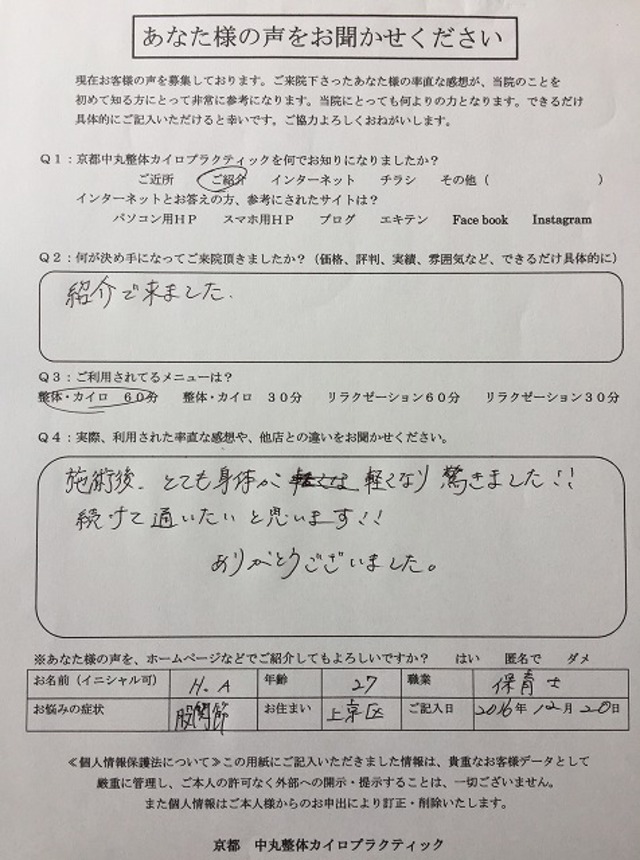 あなた様の声をお聞かせください
現在お客様の声を募集しております。ご来院下さったあなた様の率直な感想が、当院のことを
初めて知る方にとって非常に参考になります。当院にとっても何よりの力となります。できるだけ
具体的にご記入いただけると幸いです。ご協力よろしくおねがいします。
Q1：京都中丸整体カイロプラクティックを何でお知りになりましたか？
ご近所　ご紹介　インターネット　チラシ　その他（　　　　　　）
インターネットとお答えの方、参考にされたサイトは？
パソコン用HP　スマホ用HP　ブログ　エキテン　Face book　Instagram
Q2：何が決め手になってご来院頂きましたか？（価格、評判、実績、雰囲気など、できるだけ具体的に）
紹介で来ました.
Q3：ご利用されてるメニューは？
整体・カイロ　60分　整体・カイロ　30分　リラクゼーション60分　リラクゼーション30分
Q4：実際、利用された率直な感想や、他店との違いをお聞かせください。
施術後、とても身体が 軽くなり 驚きました!!
続けて通いたいと思います!!
ありがとうございました。
※あなた様の声を、ホームページなどでご紹介してもよろしいですか？　はい　匿名で　ダメ
お名前（イニシャル可）　H.A　年齢　27　職業　保育士
お悩みの症状　股関節　お住まい　上京区　ご記入日　2016年12月20日
≪個人情報保護法について≫この用紙にご記入いただきました情報は、貴重なお客様データとして
厳重に管理し、ご本人の許可なく外部への開示・提示することは、一切ございません。
また個人情報はご本人様からのお申出により訂正・削除いたします。
京都　中丸整体カイロプラクティック